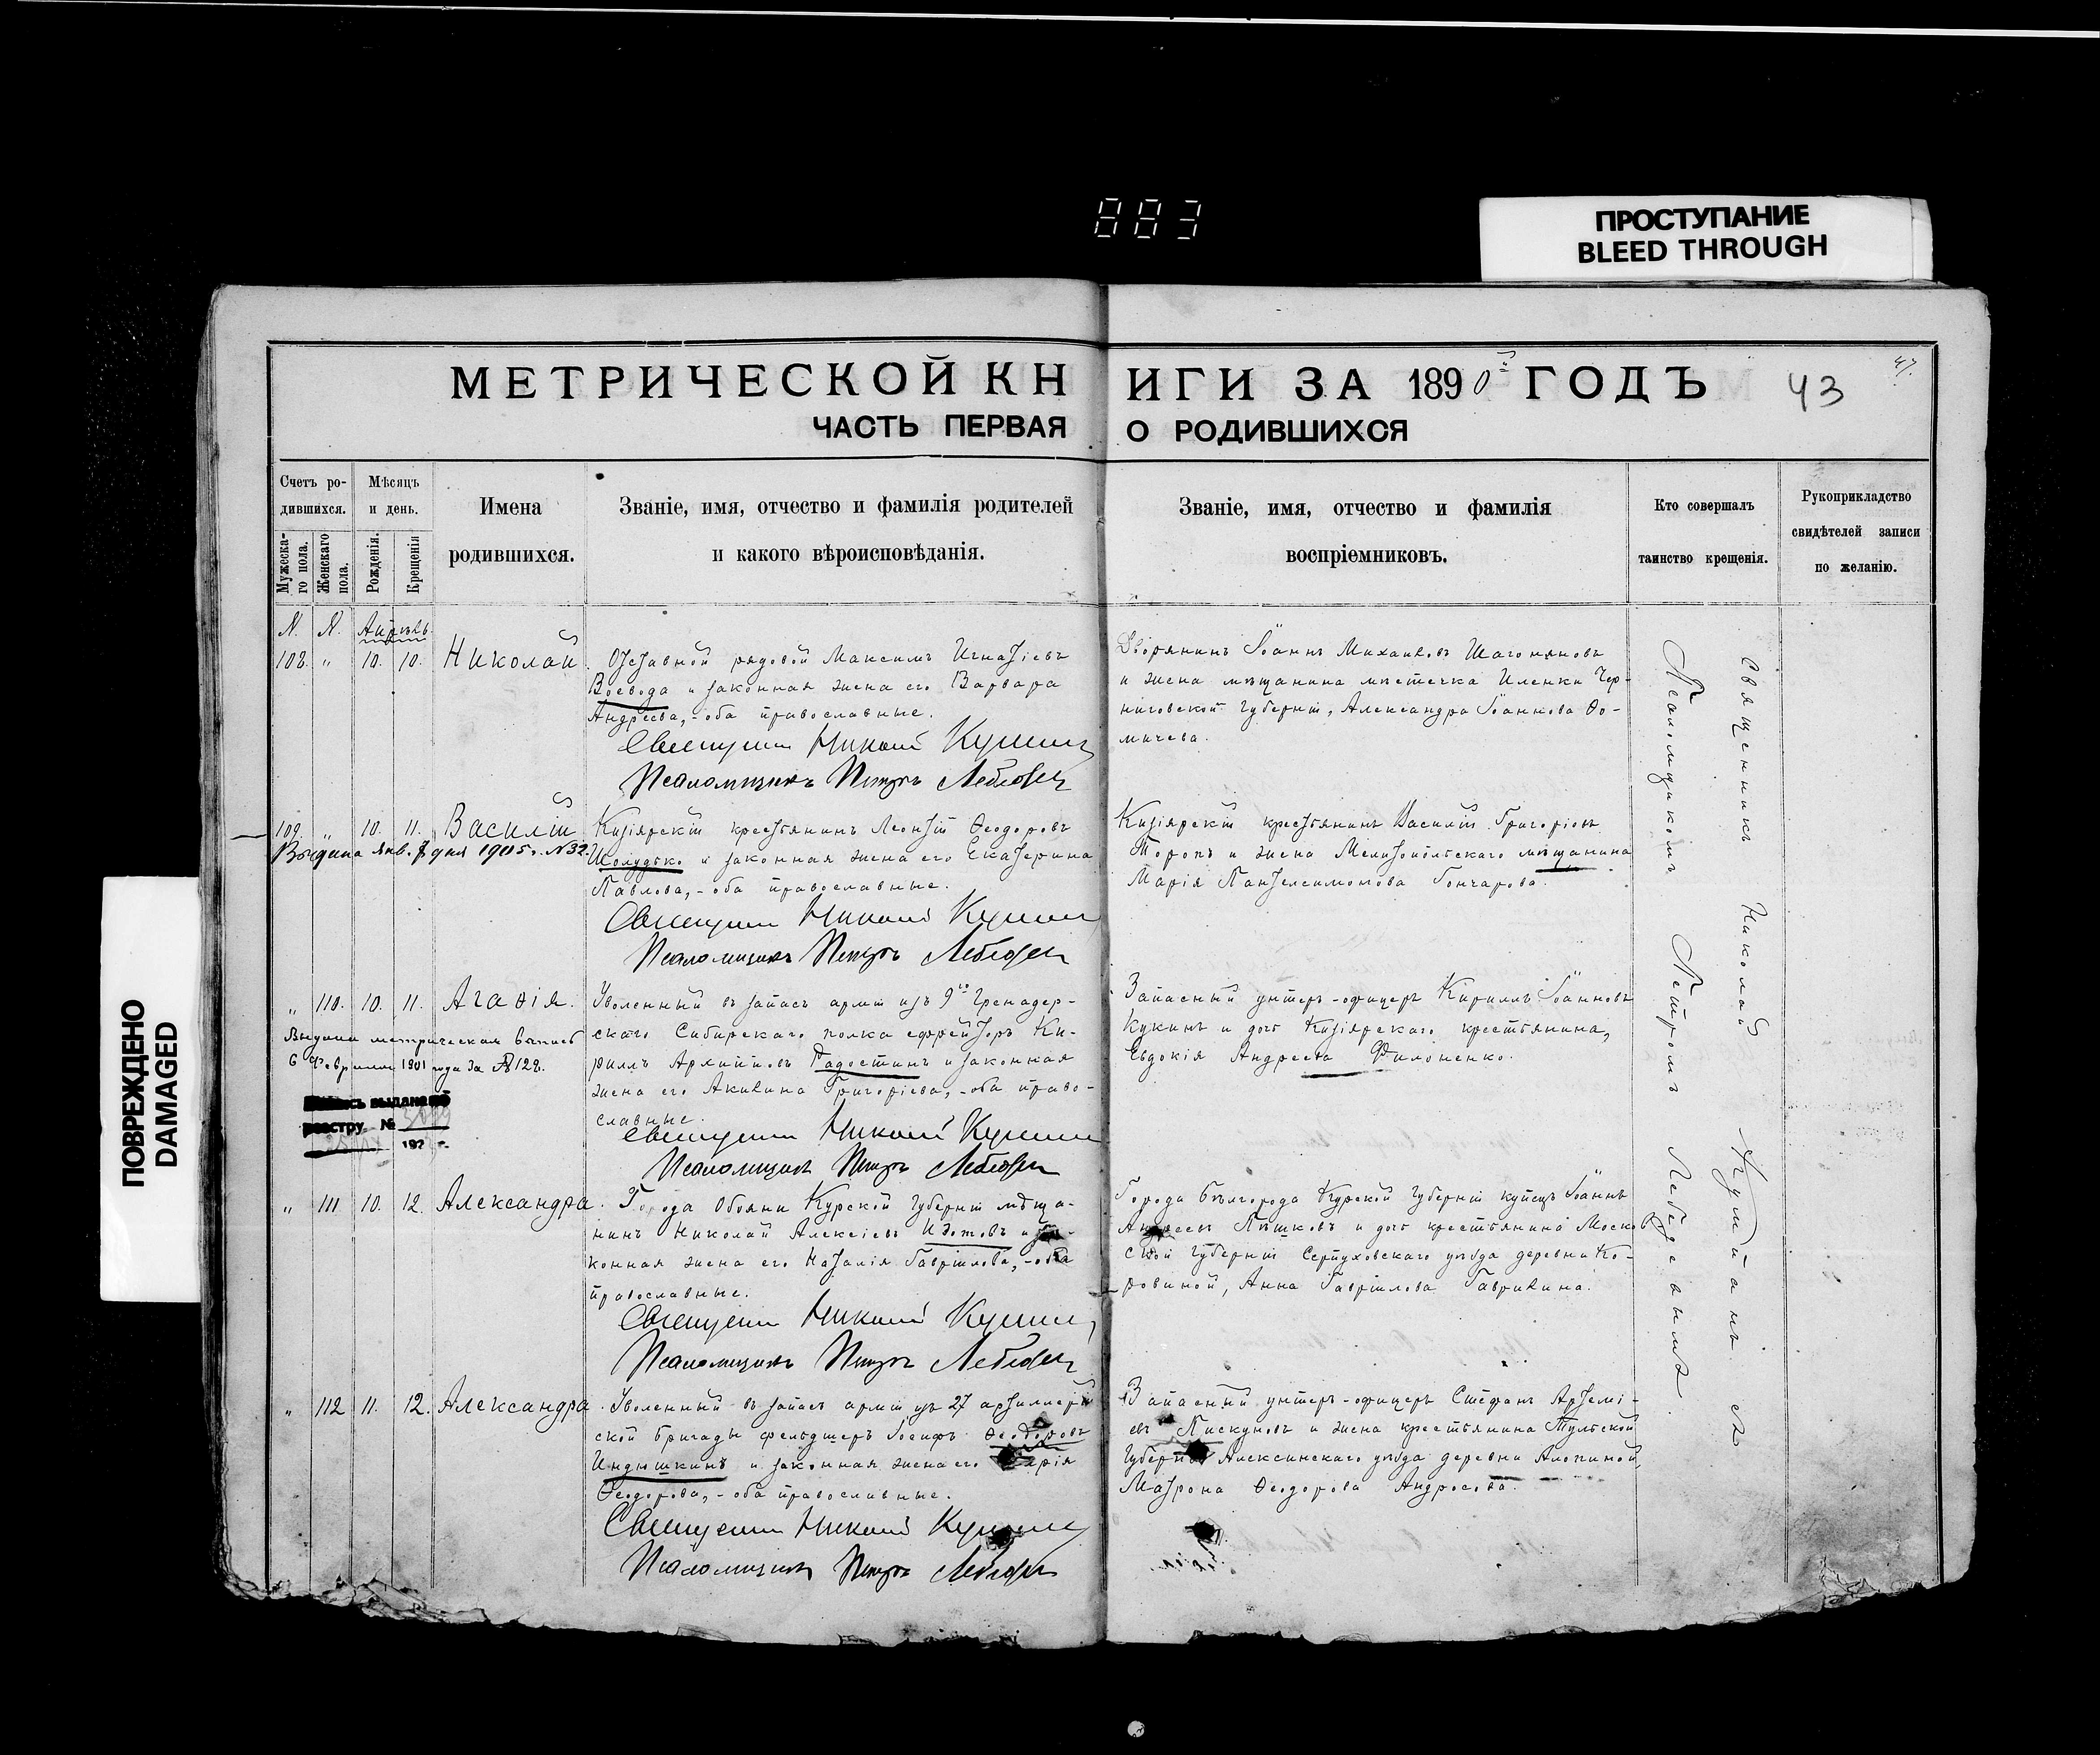 883
ПРОСТУПАНИЕ
BLEED THROUGH
ПОВРЕЖДЕНО
DAMAGED
МЕТРИЧЕСКОЙ КНИГИ ЗА 1890й ГОДЪ
43
47.
ЧАСТЬ ПЕРВАЯ О РОДИВШИХСЯ
Счетъ ро-
дившихся.
Мужеска-
го пола.
Женскаго
пола.
Мѣсяцъ
и день.
Рожденія.
Крещенія
Имена
родившихся.
Званіе, имя, отчество и фамилія родителей
и какого вѣроисповѣданія.
Званіе, имя, отчество и фамилія
воспріемниковъ.
Кто совершалъ
таинство крещенія.
Рукоприкладство
свидѣтелей записи
по желанію.
N. N. Апрѣль.
108. " 10. 10. Николай.
Отставной рядовой Максимъ Игнатіевъ
Воевода и законная жена его Варвара
Андреева, - оба православные.
Священникъ Николай
Псаломщикъ Петръ Лебедевъ
Дворянинъ Іоаннъ Михаиловъ
и жена мѣщанина мѣстечка Иленки Чер-
ниговской губерніи, Александра Іоаннова Ѳо-
мичева.
109. " 10. 11. Василій
Выдана Янв. 7 дня 1905 г. N 32.
Кизіярскій крестьянинъ Леонтій Ѳеодоровъ
Шолудько и законная жена его Екатерина
Павлова, - оба православные.
Священникъ Николай
Псаломщикъ Петръ Лебедевъ
Кизіярскій крестьянинъ Василій Григорьевъ
Торопъ и жена Мелитопольскаго мѣщанина
Марія Пантелеимонова Гончарова.
" 110. 10. 11. Агаѳія.
Выдана метрическая выпись
6 Февраля 1901 года за № 128.
выдана по
реестру №
192 г.
Уволенный въ запасъ арміи изъ 9го Гренадер-
скаго Сибирскаго полка ефрейторъ Ки-
риллъ Архипповъ Гадостинъ и законная
жена его Акилина Григорьева, - оба право-
славные.
Священникъ Николай
Псаломщикъ Петръ Лебедевъ
Запасный унтеръ-офицеръ Кириллъ Іоанновъ
Кукинъ и дочь Кизіярскаго крестьянина,
Евдокія Андреева Филоненко.
" 111 10. 12. Александра.
Города Обояни Курской губерніи мѣща-
нинъ Николай Алексіевъ Изотовъ и за-
конная жена его Наталія Гавріилова, - оба
православные.
Священникъ Николай
Псаломщикъ Петръ Лебедевъ
Города Бѣлгорода Курской губерніи купецъ Іоаннъ
Андреевъ Пѣшковъ и дочь крестьянина Москов-
ской губерніи Серпуховскаго уѣзда деревни Ко-
ровиной, Анна Гавріилова Гаврилина.
" 112 11. 12. Александра.
Уволенный въ запасъ арміи изъ 27 артиллерій-
ской бригады фельдшеръ Іосифъ Ѳеодоровъ
Индюшкинъ и законная жена его Марія
Ѳеодорова, - оба православные.
Священникъ Николай
Псаломщикъ Петръ Лебедевъ
Запасный унтеръ-офицеръ Стефанъ Артемі-
евъ Пискуновъ и жена крестьянина Тульской
губерніи Алексинскаго уѣзда деревни Алопиной,
Матрона Ѳеодорова Андросова.
Священникъ Николай съ
Псаломщикомъ Петромъ Лебедевымъ.